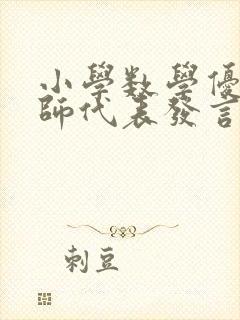 小學數學優
師代表發言
刺豆